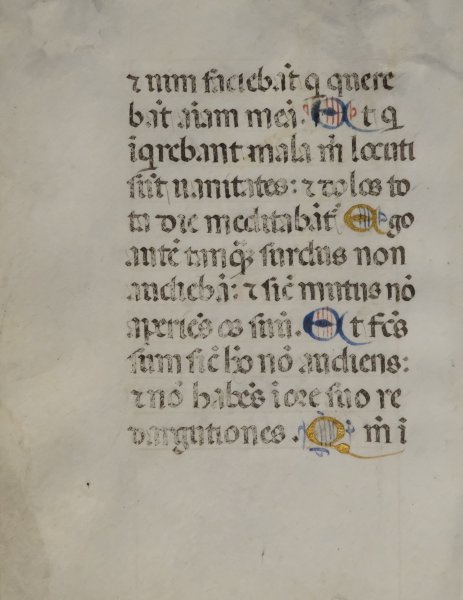 ⁊ uim faciebāt q̄ quere
bāt aīam meā. Et q̄
īq̄rebant mala m̄ locuti
sūt uanitates: ⁊ dolos to
ta die meditabāt᷑ Ego
autē tanq̄ surdus non
audiebā: ⁊ sic̄ mutus nō
aperiēs os suū. Et fc̄s
sum sic̄ hō nō audiens:
⁊ nō habēs ī ore suo re
dargutiones. Qm̄ ī